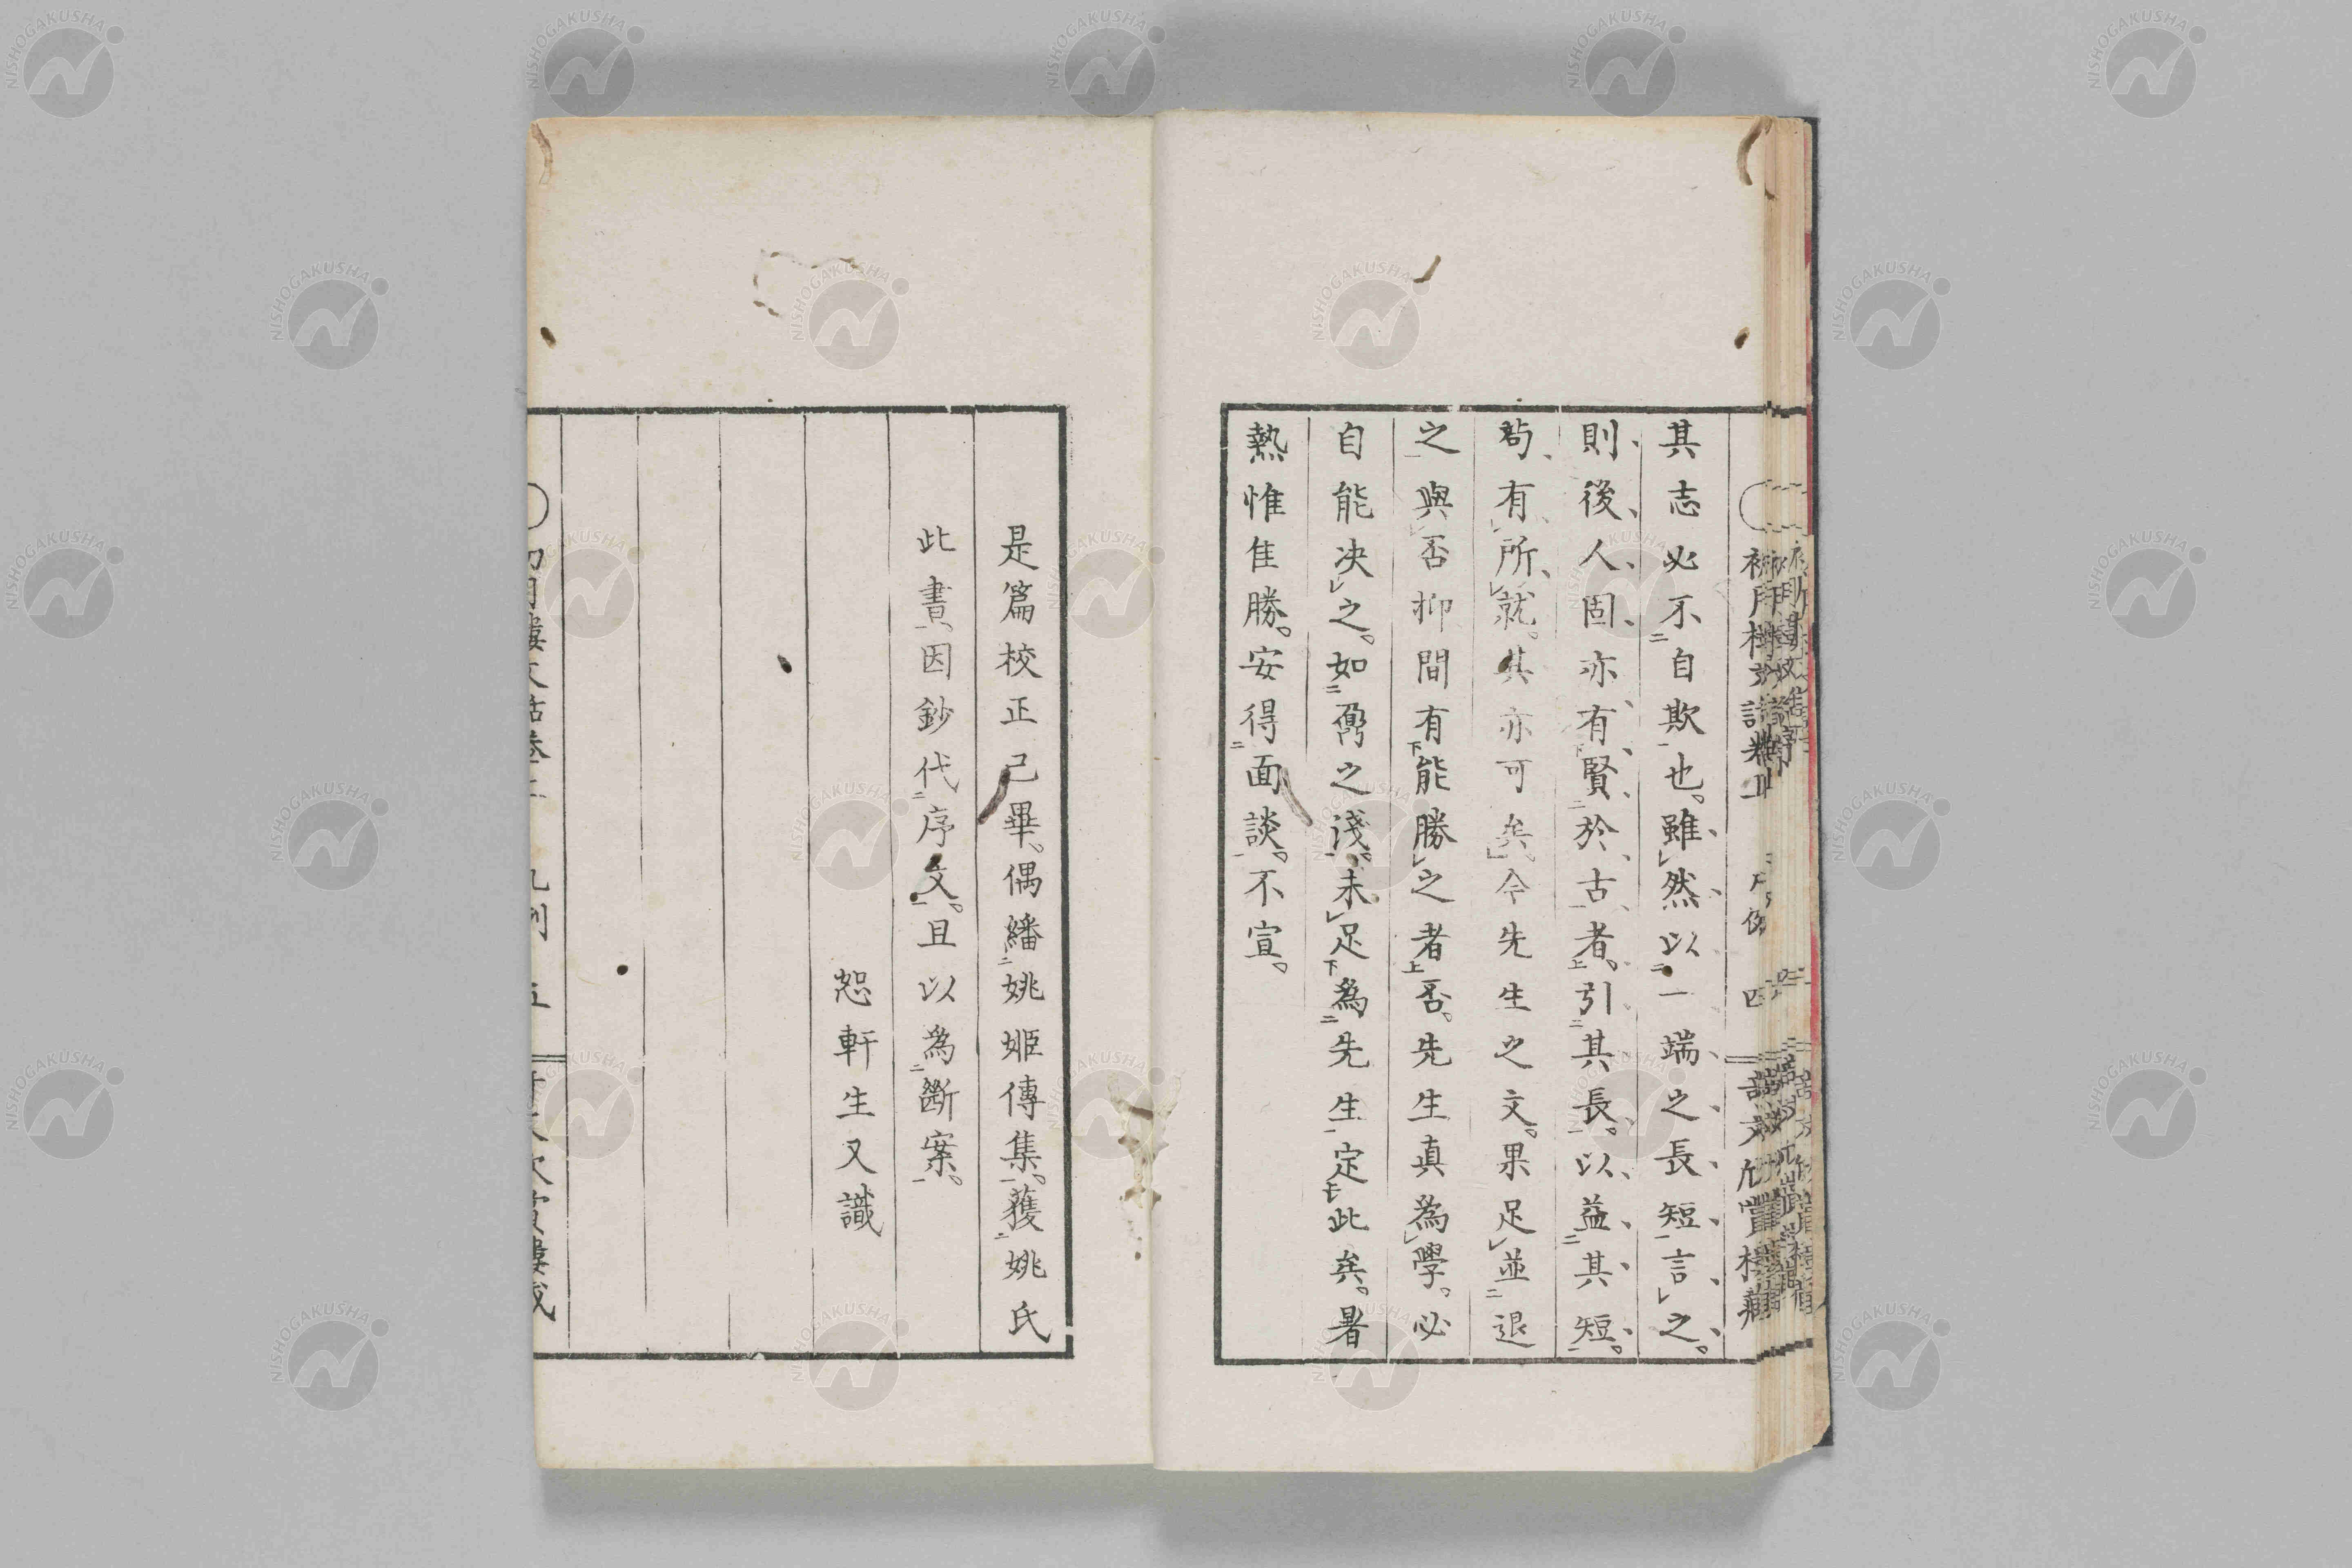 其志必不自欺也。雖然以一端之長短言之。
則後人固亦有賢於古者。引其長。以益其短。
茍有所就。其亦可矣今先生之文。果足並退
之與否抑間有能勝之者否。先生真為學。必
自能决之。如鼐之淺。未足為先生定此矣。暑
熱惟隹勝。安得面談。不宣。
是篇校正已畢。偶繙姚姬傳集。獲姚氏
此書。因鈔代序文。且以為斷案。
恕軒生又識
NISHOGAKUSHA